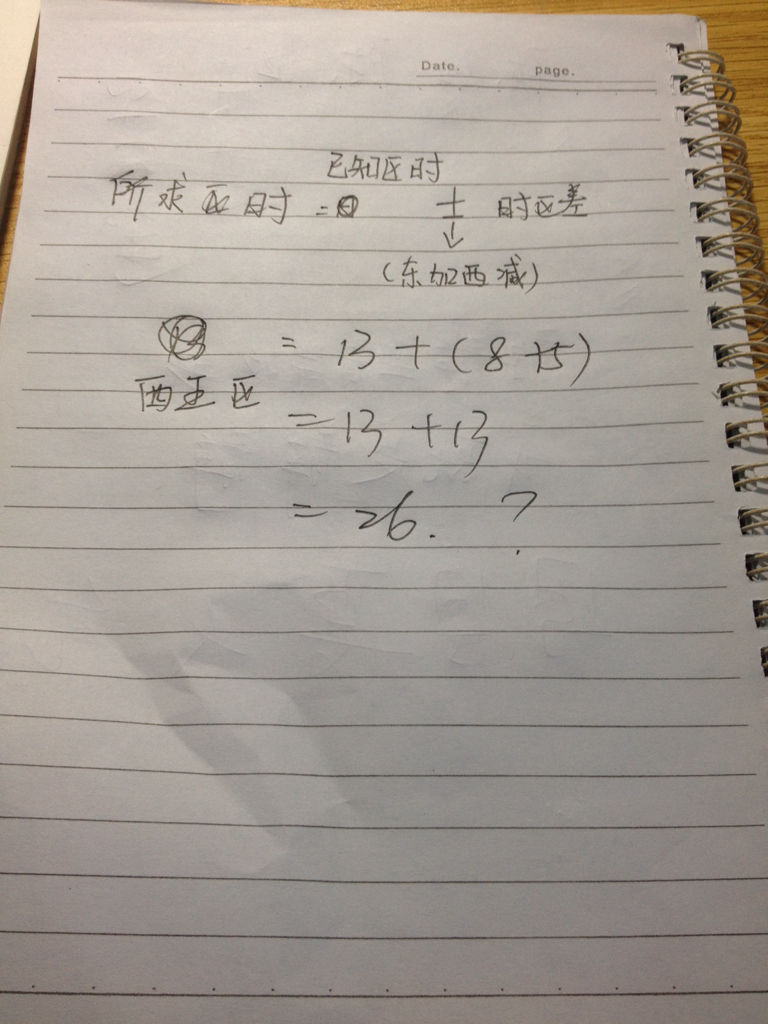 Date. page.
已知区时
所求区时 = ± 时区差
↓
(东加西减)
= 13 + (8+5)
西五区
= 13 + 13
= 26. ?